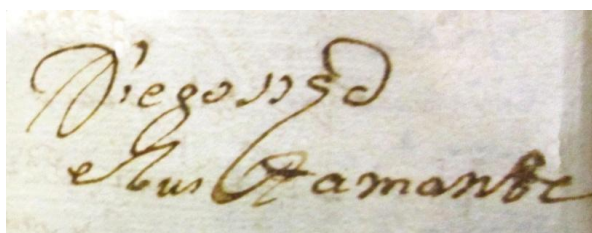 Diego d
e bustamante